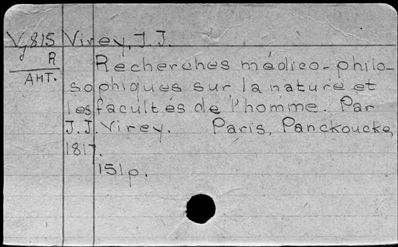 Vy815 Virey, J.J.
R Recherches médico-philo-
Ант. sophiques sur la nature et
les facultés de l'homme. Par
J.J. Virey. Paris, Panckoucke,
1817.
151p.